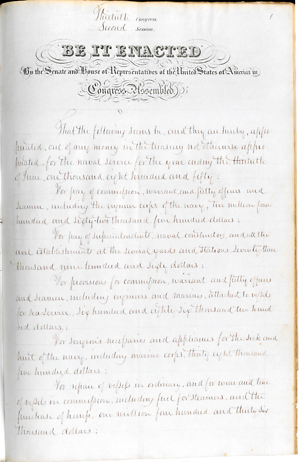 Thirtieth Congress
Second Session.
1
BE IT ENACTED
By the Senate and House of Representatives of the United States of America in
Congress Assembled,
That the following sums be, and they are hereby, appro
priated, out of any money in the treasury not otherwise appro
priated, for the naval service for the year ending the thirtieth
of June, one thousand eight hundred and fifty:
For pay of commission, warrant and petty officers and
seamen, including the engineer corps of the navy, two million four
hundred and sixty-two thousand five hundred dollars:
For pay of superintendents, naval constructors, and all the
civil establishments at the several yards and stations seventy-three
thousand nine hundred and sixty dollars:
For provisions for commission, warrant and petty officers
and seamen, including engineers and marines, attached to vessels
for sea service, six hundred and eighty six thousand two hund
red dollars:
For surgeon's necessaries and appliances for the sick and
hurt of the navy, including marine corps, thirty eight thousand
five hundred dollars:
For repair of vessels in ordinary, and for wear and tear
of vessels in commission, including fuel for steamers, and the
purchase of hemp, one million four hundred and thirty six
thousand dollars: